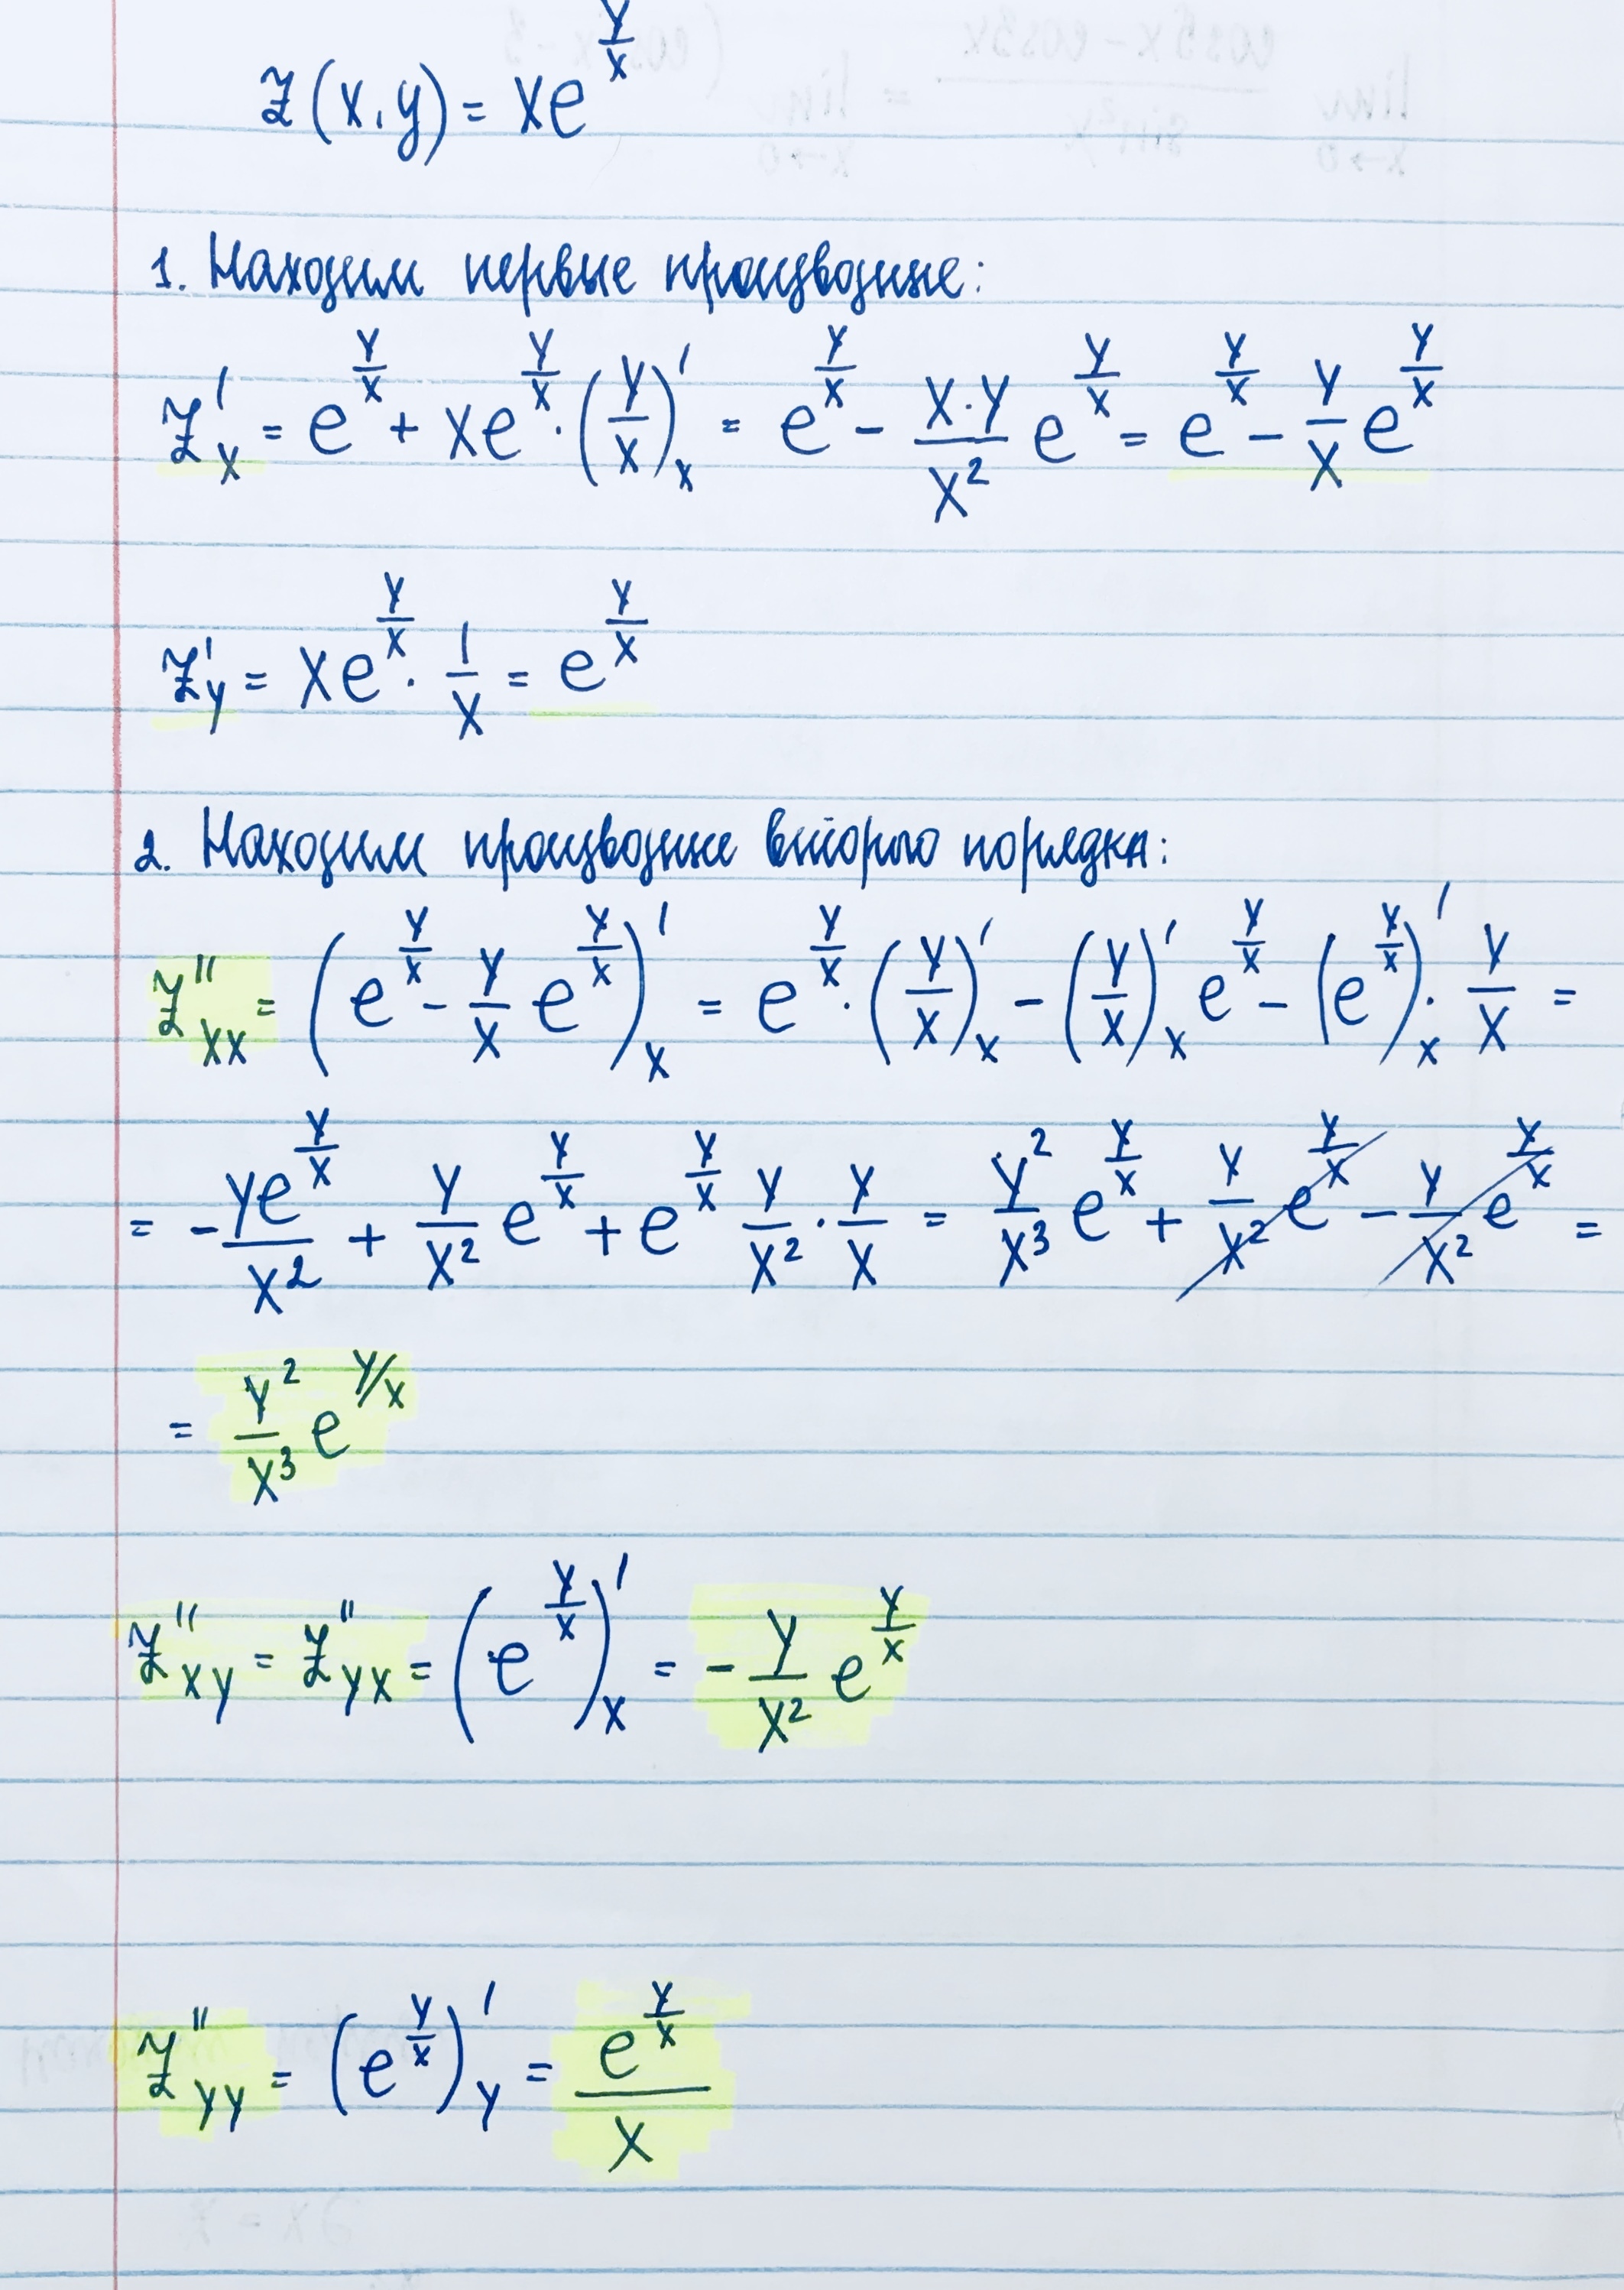 z(x,y) = xe^(y/x)
1. Находим первые производные:
z'_x = e^(y/x) + xe^(y/x) · (y/x)'_x = e^(y/x) - (x·y)/(x^2) e^(y/x) = e^(y/x) - y/x e^(y/x)
z'_y = xe^(y/x) · 1/x = e^(y/x)
2. Находим производные второго порядка:
z''_xx = (e^(y/x) - y/x e^(y/x))'_x = e^(y/x) · (y/x)'_x - (y/x)'_x e^(y/x) - (e^(y/x))'_x · y/x =
= - (ye^(y/x))/(x^2) + y/(x^2) e^(y/x) + e^(y/x) y/(x^2) · y/x = y^2/(x^3) e^(y/x) + y/(x^2) e^(y/x) - y/(x^2) e^(y/x) =
= y^2/(x^3) e^(y/x)
z''_xy = z''_yx = (e^(y/x))'_x = - y/(x^2) e^(y/x)
z''_yy = (e^(y/x))'_y = e^(y/x)/x